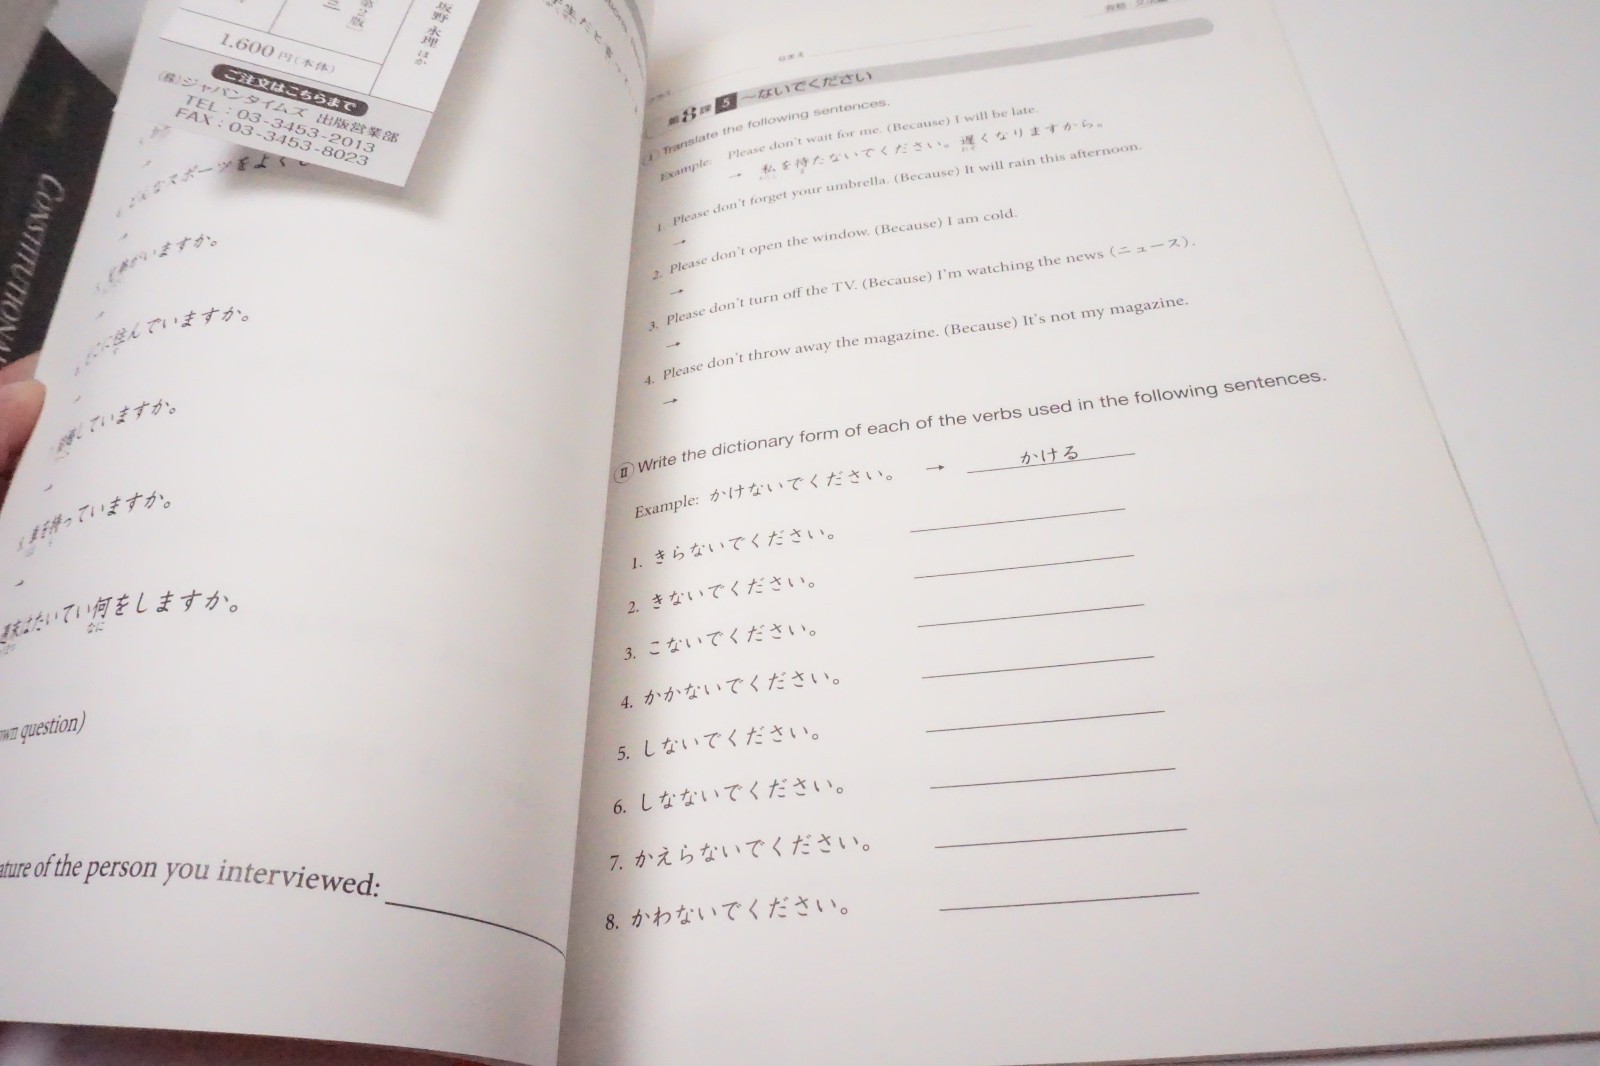 CONSTITUTIONAL
第2版
坂野永理 ほか
1,600円(本体)
ご注文はこちらまで
(株)ジャパンタイムズ 出版営業部
TEL:03-3453-2013
FAX:03-3453-8023
スポーツをよく
いますか。
に住んでいますか。
す
していますか。
車を持っていますか。
週末はたいてい何をしますか。
なに
own question)
ature of the person you interviewed:
第8課 5 〜ないでください
Ⅰ Translate the following sentences.
Example: Please don't wait for me. (Because) I will be late.
→ 私を待たないでください。遅くなりますから。
1. Please don't forget your umbrella. (Because) It will rain this afternoon.
→
2. Please don't open the window. (Because) I am cold.
→
3. Please don't turn off the TV. (Because) I'm watching the news (ニュース).
→
4. Please don't throw away the magazine. (Because) It's not my magazine.
→
Ⅱ Write the dictionary form of each of the verbs used in the following sentences.
Example: かけないでください。 → かける
1. きらないでください。
2. きないでください。
3. こないでください。
4. かかないでください。
5. しないでください。
6. しなないでください。
7. かえらないでください。
8. かわないでください。